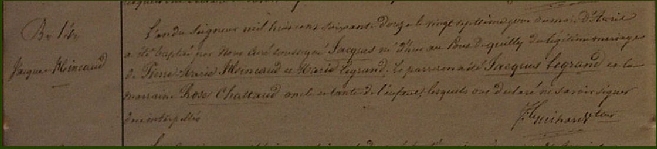 Bs 1
Jacques Mincaud
L'an du Seigneur mil huit cent soixante Douze le vingt septième jour du mois D'Avril
a été baptisé par Nous Curé soussigné Jacques né d'hier au du légitime mariage
de Pierre Mincaud et Marie Legrand. Le parrain a été Jacques Legrand et la
marraine Rose Chattaud oncle et tante de l'enfant, lesquels ont déclaré ne savoir signer
de ce interpellés